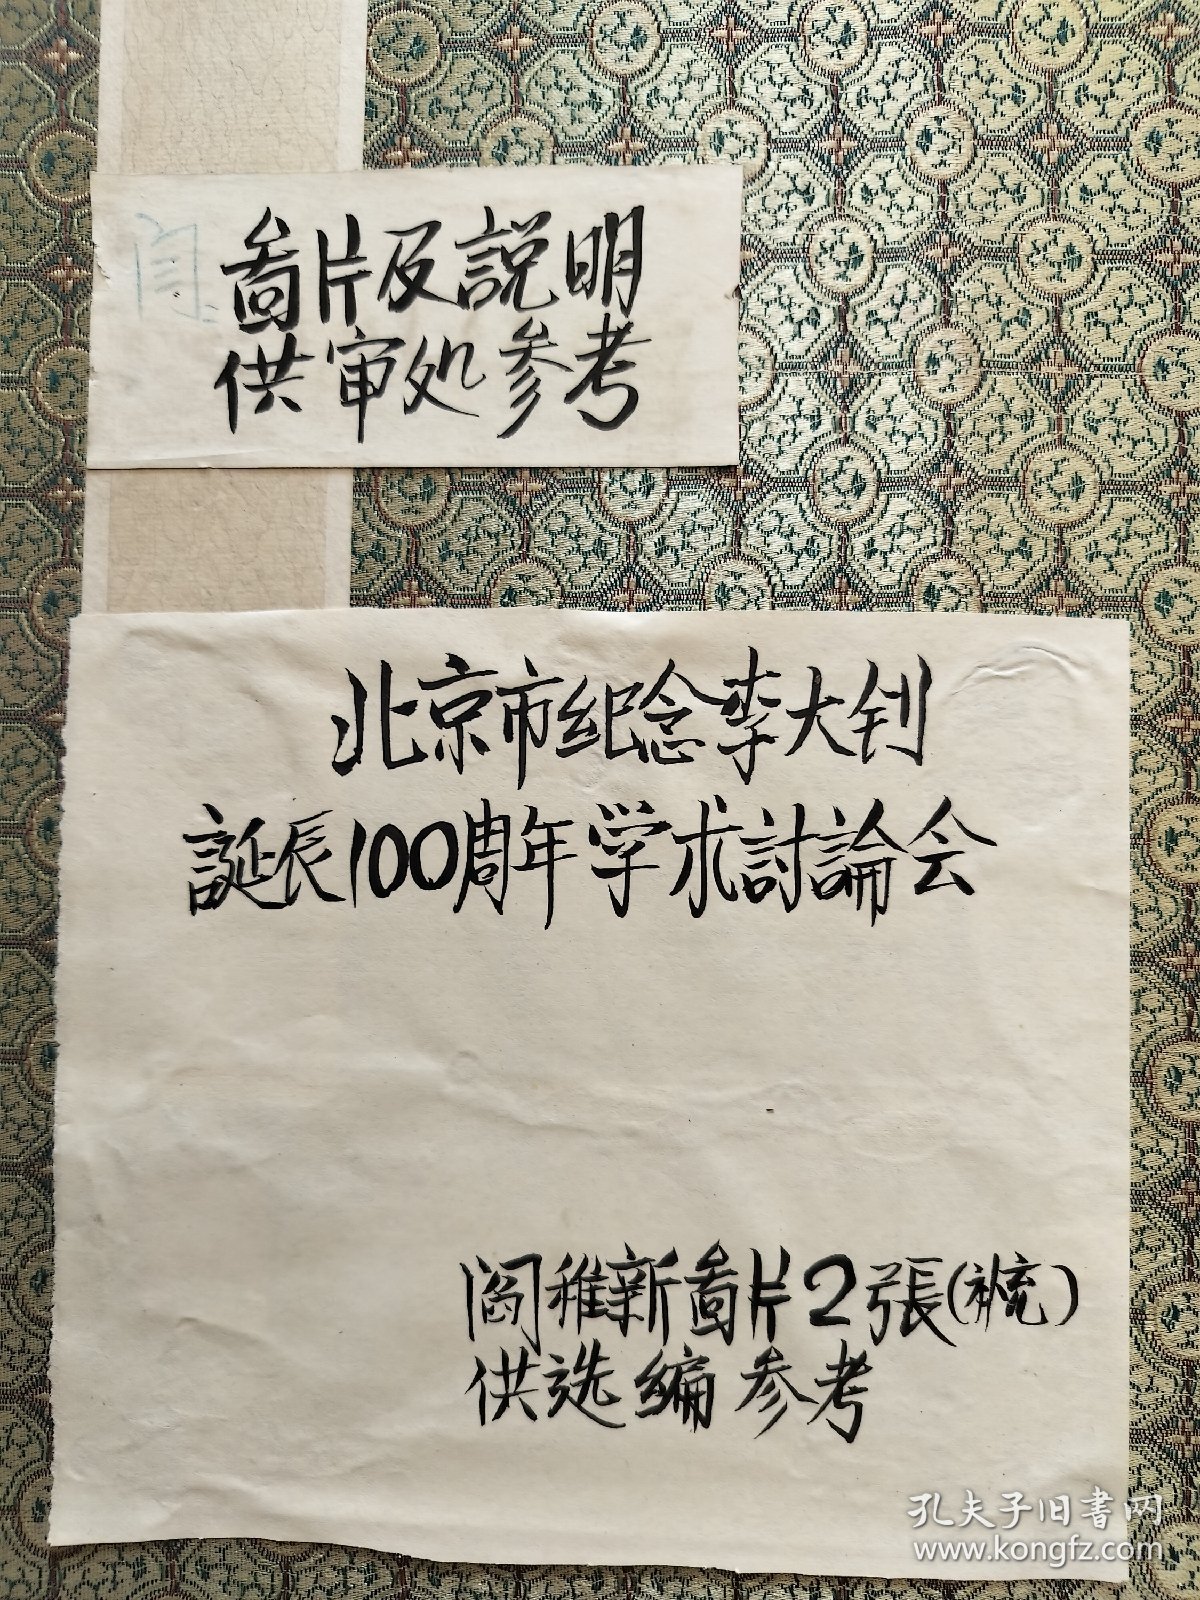 闫
啚片及説明
供审处参考
北京市纪念李大钊
誕辰100周年学术討論会
阎稚新啚片2張(补充)
供选编参考
孔夫子旧书网
www.kongfz.com